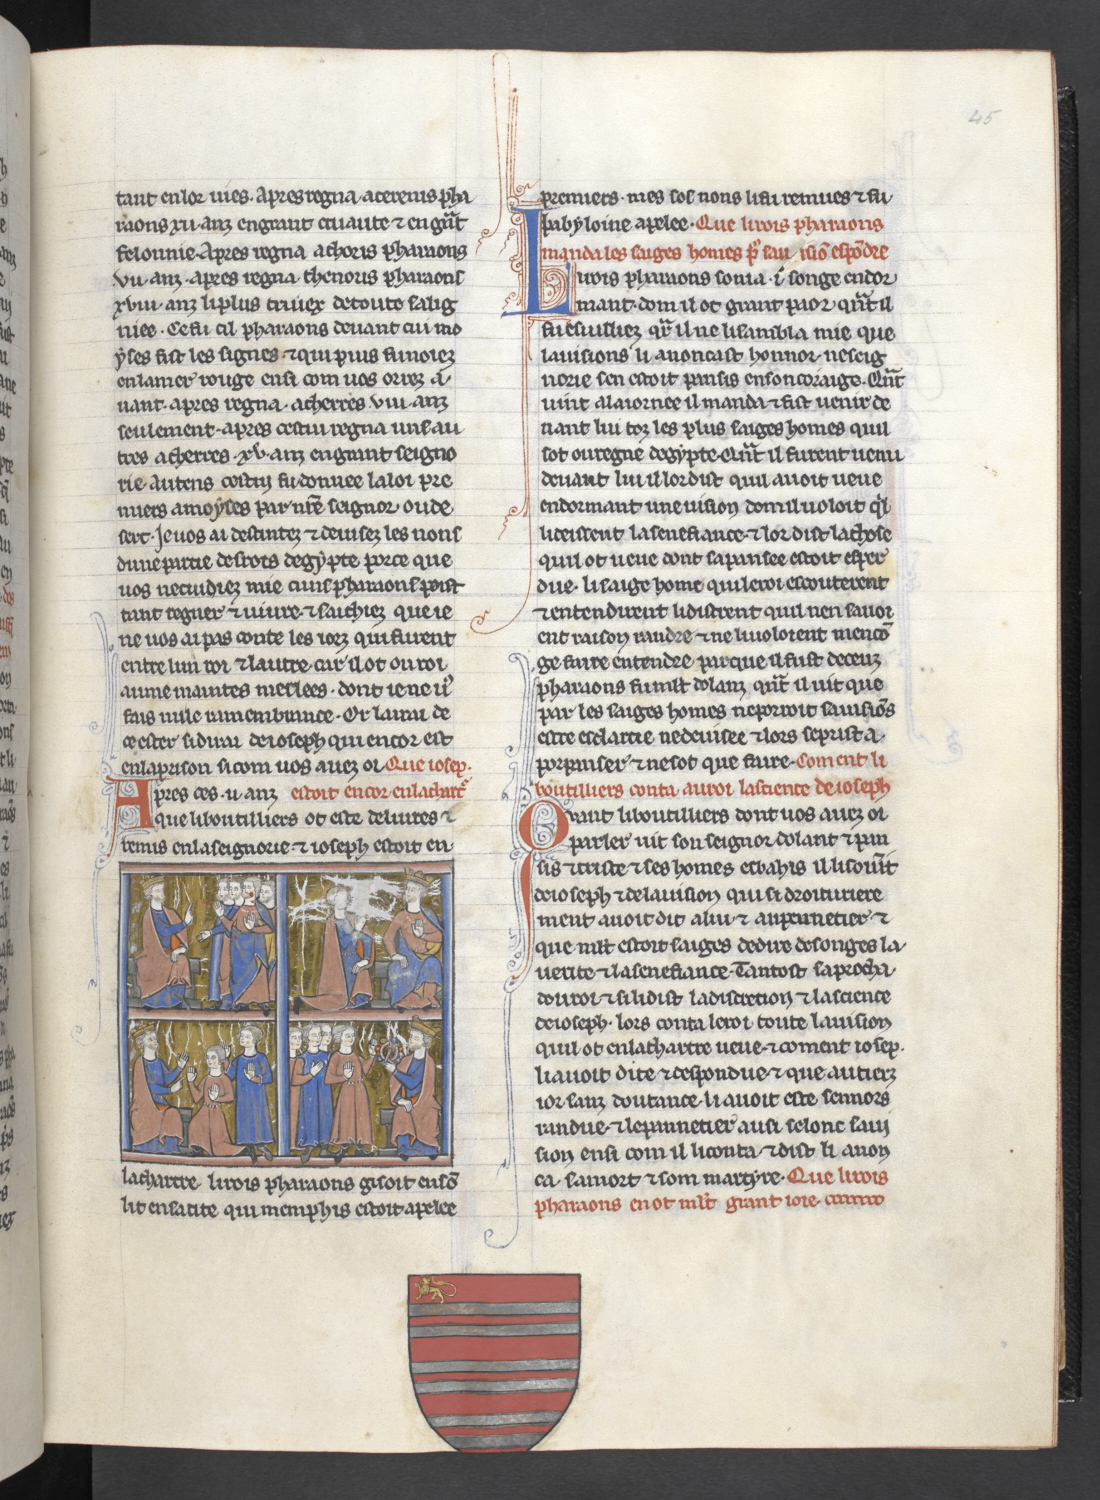 45
tant en lor vies. Apres regna acerenis pha
raons xii. anz en grant cruaute ⁊ en gnt̄
felonnie. Apres regna achoris pharaons
vii. anz. apres regna chenoris pharaons
xviii. anz li plus cruiex de toute sa lig
niee. Ce fu cil pharaons devant cui mo
yses fist les signes. ⁊ qui puis fu noiez
en la mer rouge ensi com vos orrez a
vant. apres regna. acherres viii. anz
seulement. apres cestui regna uns au
tres acherres. xv. anz en grant seigno
rie. Au tens cestuy fu donnee la loi pre
miers a moyses par nr̄e seignor ou de
sert. Je vos ai destintez ⁊ devisez les nons
d une partie des rois degypte porce que
vos ne cuidiez mie cuns pharaons poist
tant regner ⁊ vivre. ⁊ sachiez que ie
ne vos ai pas conte les roiz qui furent
entre lun roi ⁊ lautre. car il ot ou roi
aume maintes meslees. dont ie ne v9
fais nulle ramembrance. Or lairai de
ce ester si dirai de ioseph qui encor est
en la prison si com vos avez oi Que iosep.
Apres ces .ii. anz estoit encor en la chart̄
que li boutilliers ot este delivres ⁊
remis en la seignorie. ⁊ ioseph estoit en
la chartre. li rois pharaons gisoit en sō
lit en sa cite qui memphis estoit apelee
premiers. mes ses nons li fu remues ⁊ fu
babyloine apelee. Que li rois pharaons
manda les saiges homes pr̄ sa visiō espōdre
Li rois pharaons sonia .i. songe en dor
mant. dom il ot grant paor. qn̄t il
fu esvilliez. qr̄ il ne li sambla mie que
la visions li anoncast honnor. ne seig
norie sen estoit pansis en son coraige. Qn̄t
vint a la iornee il manda ⁊ fist venir de
vant lui toz les plus saiges homes quil
sot ou regne degypte. Qn̄t il furent venu
devant lui il lor dist quil avoit veue
en dormant une vision dom il voloit q̄l
li deissent la senefiance. ⁊ lor dist la chose
quil ot veue dont sa pansee estoit esper
due. li saige home qui le roi escouterent
⁊ entendirent li distrent quil nen savoi
ent raison randre ⁊ ne li voloient mencō
ge faire entendre par que il fust deceuz
pharaons fu mlt dolanz qn̄t il vit que
par les saiges homes ne porroit sa visiōs
estre esclarcie ne devisee ⁊ lors se prist a
porpanser ⁊ ne sot que faire. Coment li
boutilliers conta au roi la science de ioseph
Qvant li boutilliers dont vos avez oi
parler vit son seignor dolant ⁊ pan
sis ⁊ triste ⁊ ses homes esbahis il li sovīt
de ioseph ⁊ de la vision qui si droituriere
ment avoit dit a lui ⁊ au pennetier ⁊
que mlt estoit saiges de dire de songes la
verite ⁊ la senefiance. Tantost saprocha
dou roi ⁊ si li dist la discretion ⁊ la science
de ioseph. lors conta le roi toute la vision
quil ot en la chartre veue. ⁊ coment iosep.
li avoit dite ⁊ despondue. ⁊ que au tierz
ior sanz doutance. li avoit este sennors
randue. ⁊ le pannetier ausi selonc sa vi
sion ensi com il li conta. ⁊ dist li anon
ca. sa mort ⁊ som martyre. Que li rois
pharaons en ot mlt grant ioie.